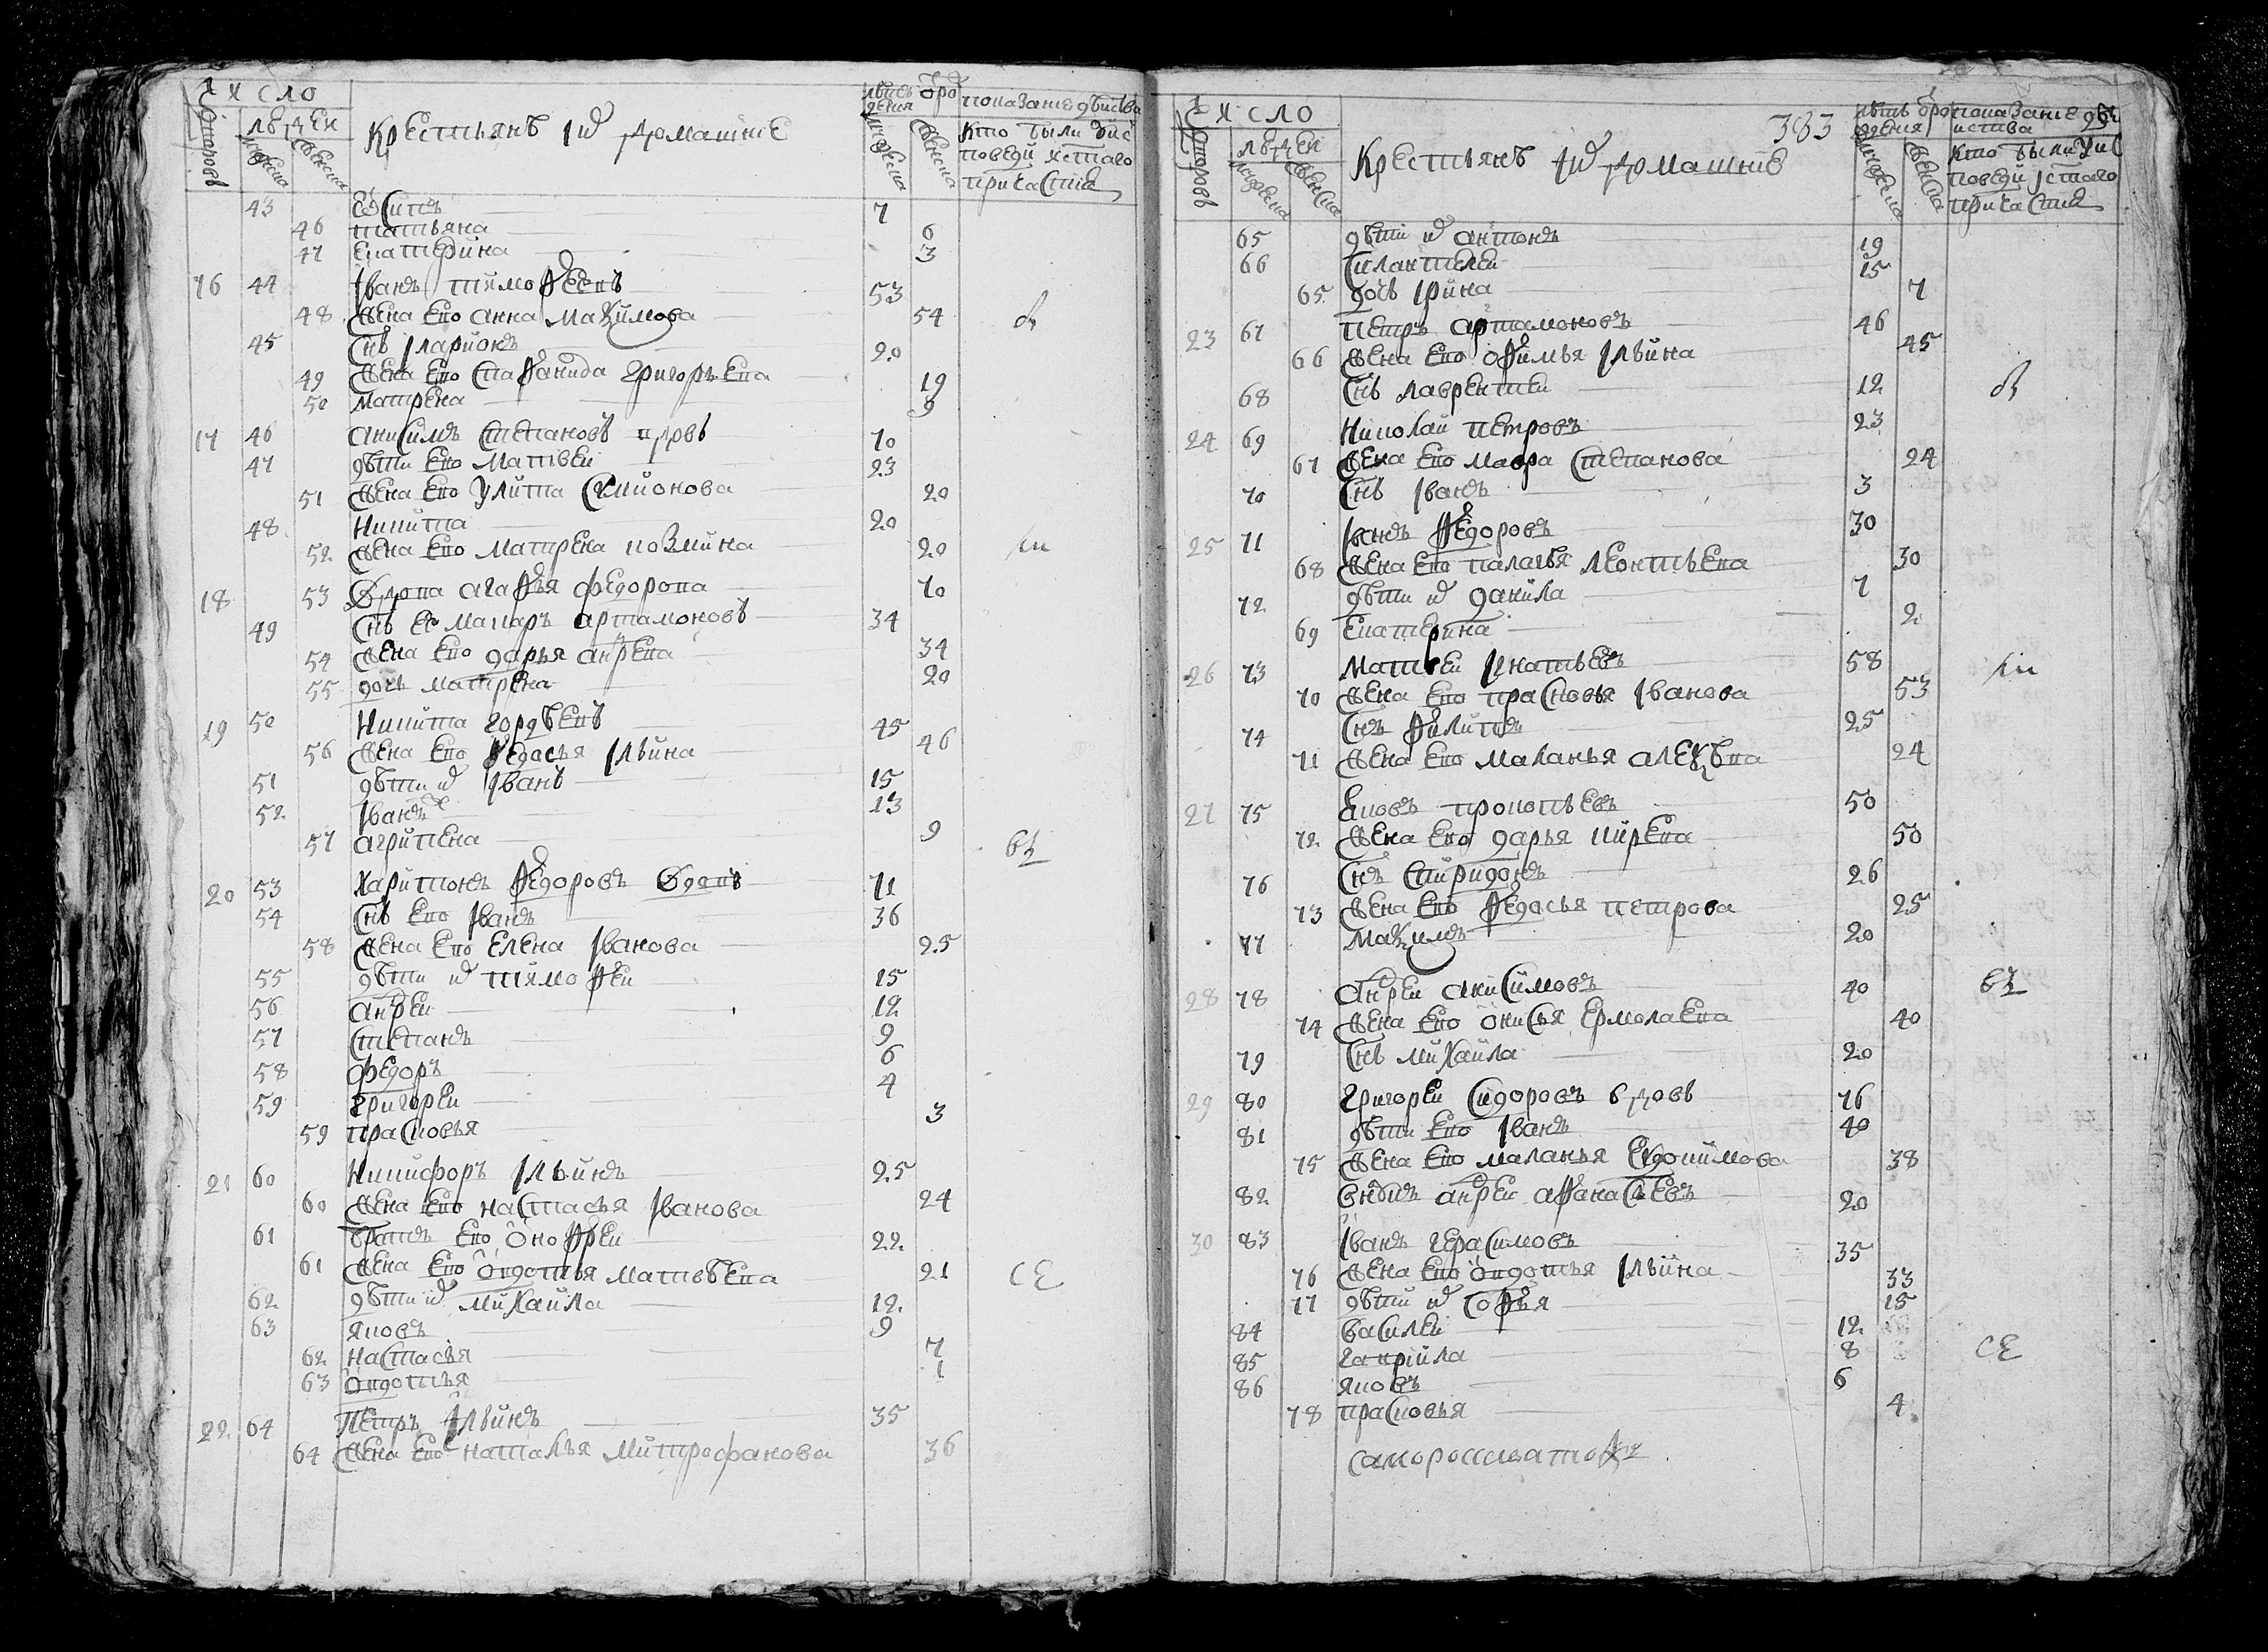 Число
Дворовъ
людей
мужеска
женска
Крестьянъ ихъ домашние
лѣтъ отрождения
мужеска
женска
показание дѣйства
кто были у исповеди и святаго причастия
43 Есипъ 7
46 татьяна 6
47 Екатерина 3
16 44 Iванъ тимофеевъ 53
48 жена ево анна Маѯимова 54
45 снъ Iларионъ 20
49 жена ево стефанида григорьева 19
50 Матрена 9
17 46 анисимъ степановъ вдовъ 70
47 дѣти ево Матвеи 23
51 жена ево Улита симионова 20
48 Никита 20
52 жена ево Матрена козмина 20
18 53 Вдова агафья федорова 70
49 снъ ее Макаръ артамоновъ 34
54 жена ево дарья анреева 34
55 дочь матрена 20
19 50 Никита гордѣевъ 45
56 жена ево Федосья Iльина 46
51 дѣти их Iванъ 15
52 Iванъ 13
57 агрипена 9
20 53 Харитонъ Федоровъ вдовъ 71
54 снъ ево Iванъ 36
58 жена ево Елена Iванова 25
55 дѣти их тимофеи 15
56 анреи 12
57 степанъ 9
58 федоръ 6
59 Григореи 4
59 прасковья 3
21 60 Никифоръ Iльинъ 25
60 жена ево настасья Iванова 24
61 братъ ево онофреи 22
61 жена ево овдотья матвѣева 21 се
62 дѣти их михаила 12
63 яковъ 9
62 настасья 7
63 овдотья 1
22 64 Петръ Iльинъ 35
64 жена ево наталья митрофанова 36
383
Число
Дворовъ
людей
мужеска
женска
Крестьянъ ихъ домашние
лѣтъ отрождения
мужеска
женска
показание дѣйства
кто были у исповеди и святаго причастия
65 дѣти их антонъ 19
66 силантелеи 15
65 дочь Iрина 7
23 67 петръ артамоновъ 46
66 жена ево офимья Iльина 45
68 снъ лаврентеи 12
24 69 Николаи петровъ 23
67 жена ево мавра степанова 24
70 снъ Iванъ 3
25 71 Iванъ Федоровъ 30
68 жена ево палагья леонтьева 30
72 дѣти их данила 7
69 Екатерина 2
26 73 Матвеи Iгнатьевъ 58
70 жена ево прасковья Iванова 53
74 снъ Филипъ 25
71 жена ево маланья алеѯѣва 24
27 75 Яковъ прокопьевъ 50
72 жена ево дарья кирева 50
76 снъ спиридонъ 26
73 жена ево Федосья петрова 25
77 Маѯимъ 20
28 78 Анреи анисимовъ 40
74 жена ево онисья Ермолаева 40
79 снъ михаила 20
29 80 Григореи сидоровъ вдовъ 76
81 дѣти ево Iванъ 40
75 жена ево маланья Евдокимова 38
82 внукъ анреи афанасьевъ 20
30 83 Iванъ герасимовъ 35
76 жена ево овдотья Iльина 33
77 дѣти их софья 15
84 василеи 12
85 гаврiила 8 се
86 яковъ 6
78 прасковья 4